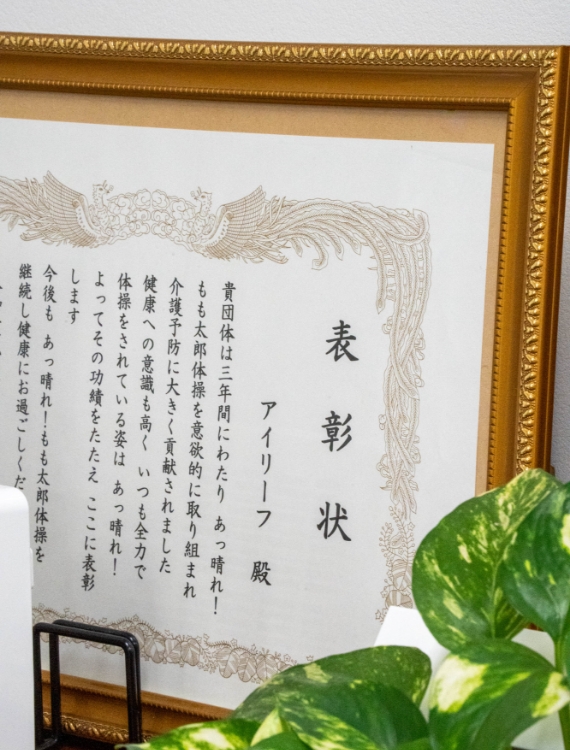 表彰状
アイリーフ 殿
貴団体は三年間にわたり あっ晴れ!
もも太郎体操を意欲的に取り組まれ
介護予防に大きく貢献されました
健康への意識も高く いつも全力で
体操をされている姿は あっ晴れ!
よってその功績をたたえ ここに表彰
します
今後も あっ晴れ!もも太郎体操を
継続し健康にお過ごしくだ